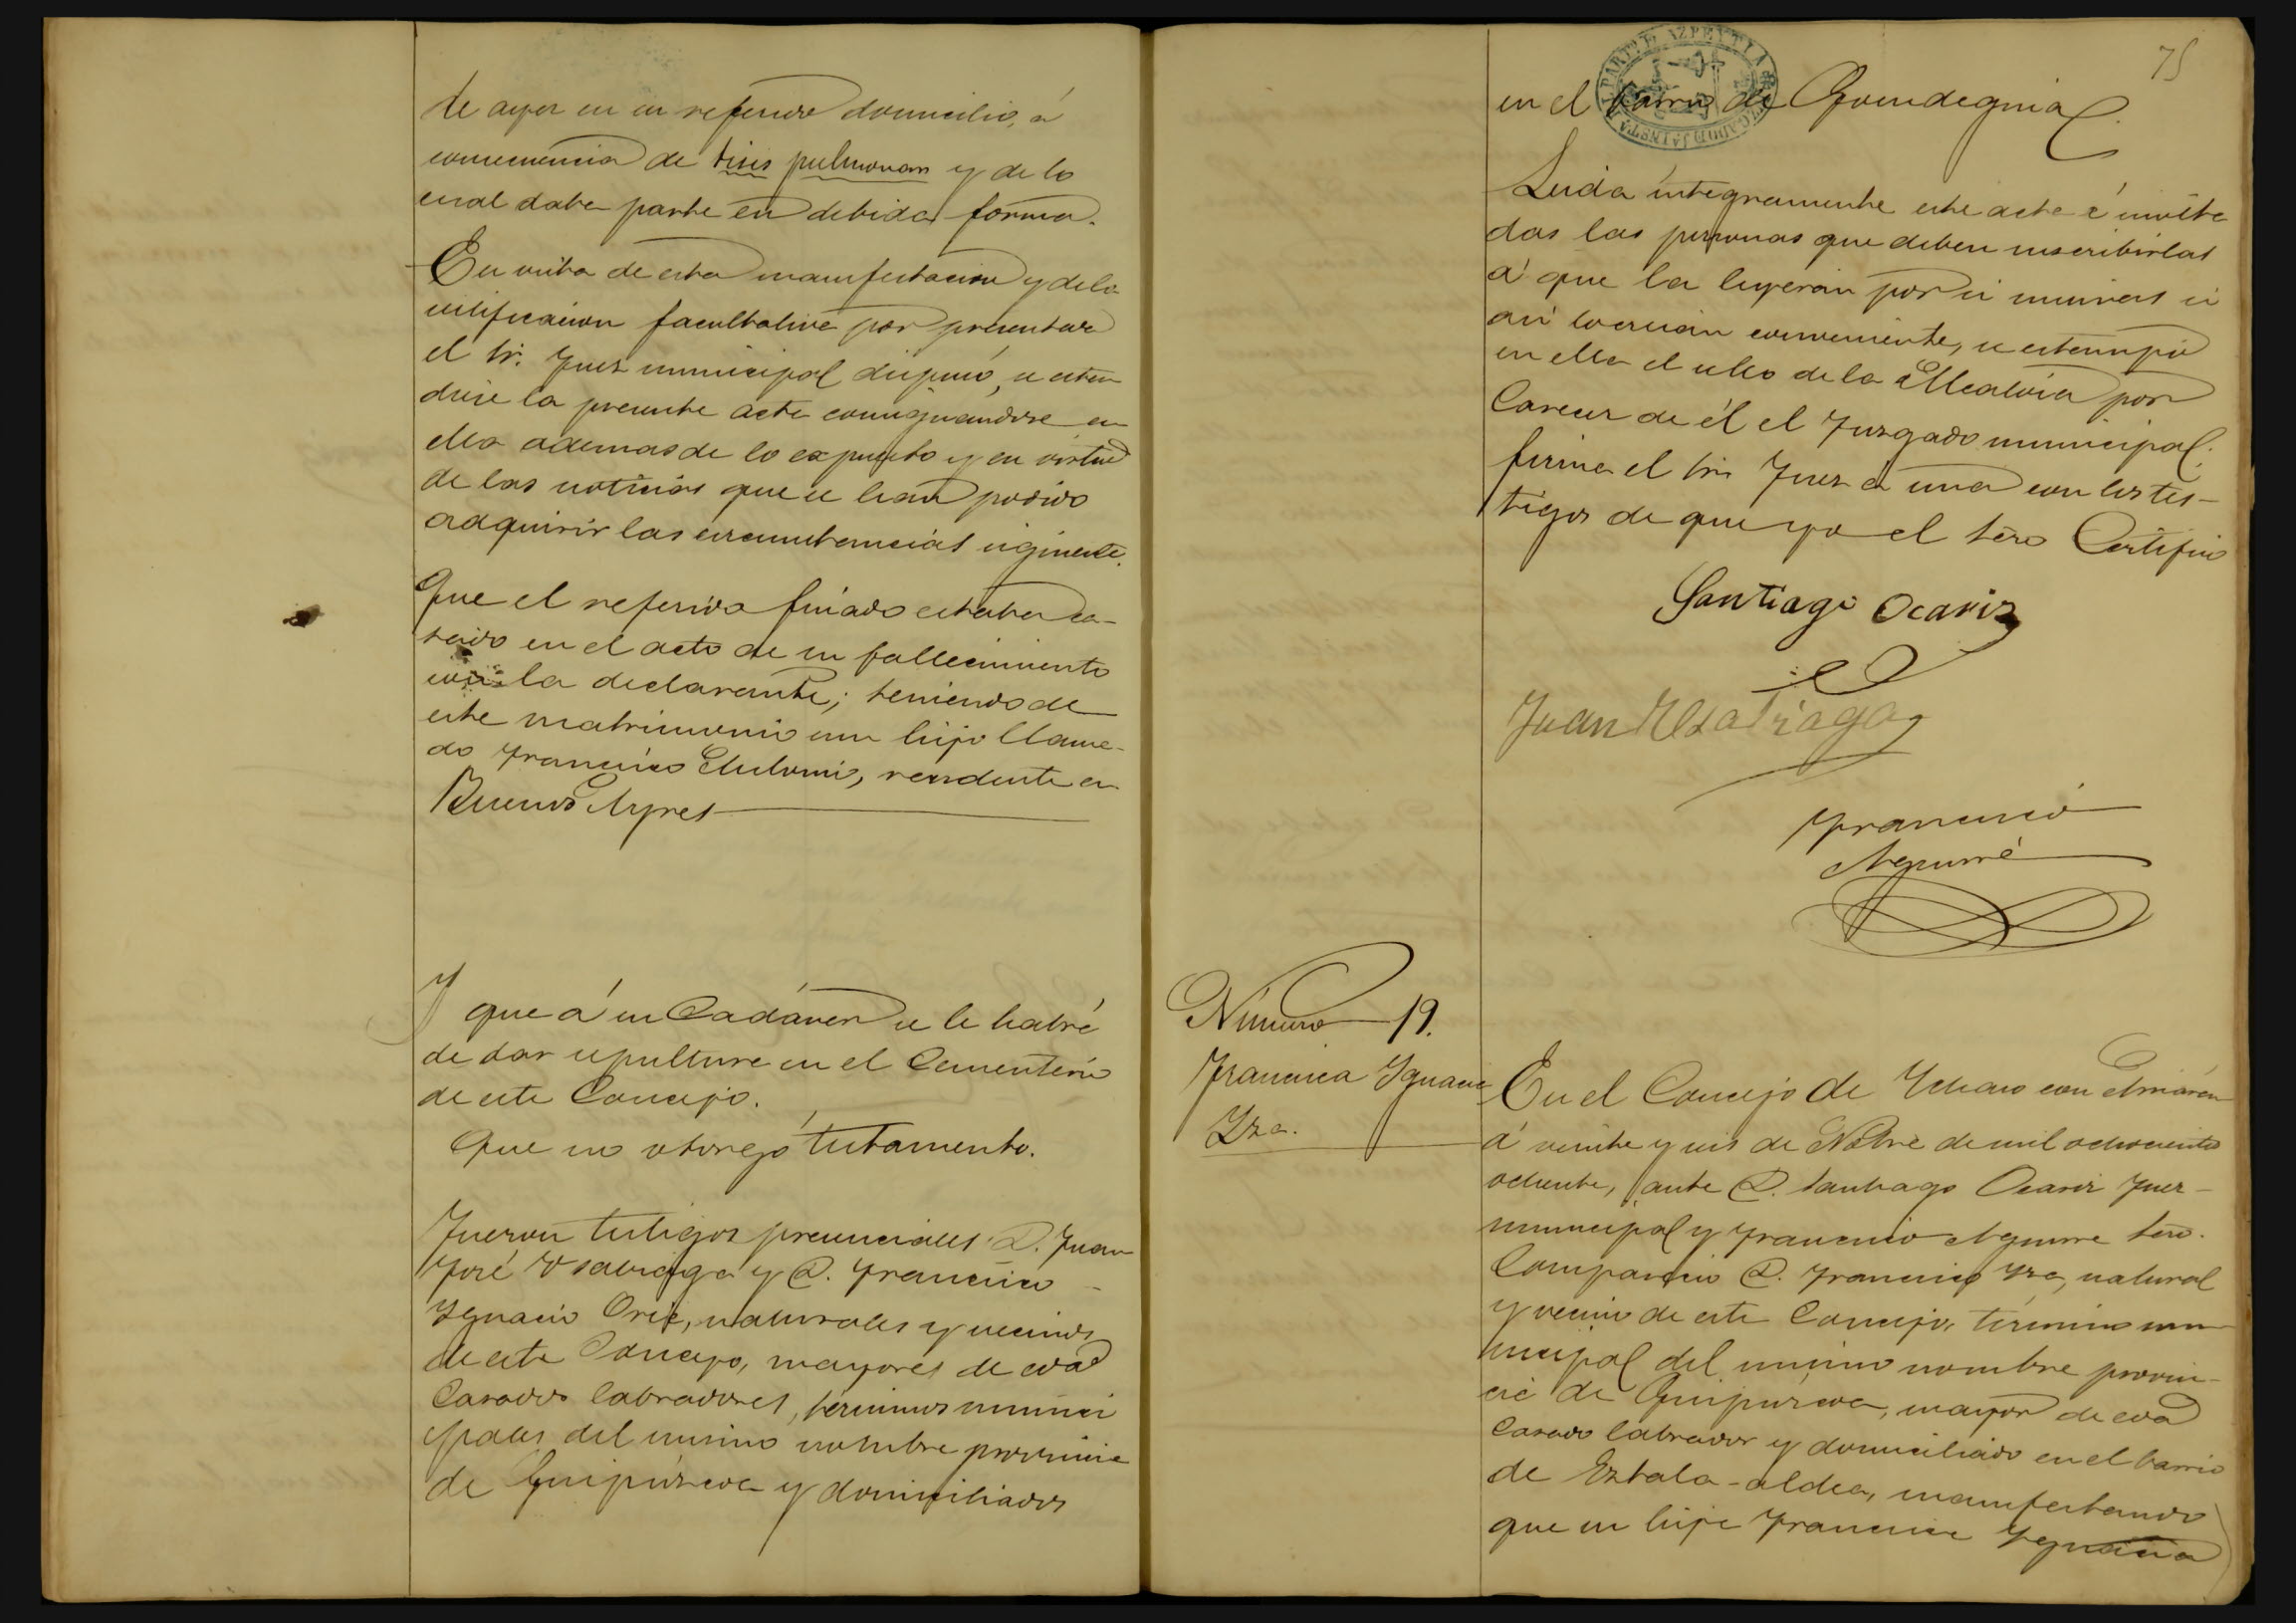 de ayer en su referido domicilio, á
consecuencia de tisis pulmonar y de lo
cual daba parte en debida forma.
En vista de esta manifestacion y de la
certificacion facultativa por presentada
el Sr. Juez municipal dispuso, se esten
diese la presente acta consignandose en
ella ademas de lo expuesto y en virtud
de las noticias que se han podido
adquirir las circunstancias siguientes.
Que el referido finado estaba ca-
sado en el acto de su fallecimiento
con la declarante; teniendo de
este matrimonio un hijo llama-
do Francisco Antonio, residente en
Buenos Ayres
Y que á su Cadáver se le habrá
de dar sepultura en el Cementerio
de este Concejo.
Que no otorgó testamento.
Fueron testigos presenciales D. Juan
José Usabiaga y D. Francisco
Ygnacio Oria, naturales y vecinos
de este Concejo, mayores de edad
Casados labradores, términos munici
pales del mismo nombre provincia
de Guipúzcoa y domiciliados
75
en el barrio de
Leida íntegramente este acta é invita
das las personas que deben suscribirlas
á que la leyeran por si mismas si
asi lo creian conveniente, se estampó
en ella el sello de la Alcaldia por
Carecer de él el Juzgado municipal;
firma el Sr. Juez á una con los tes-
tigos de que yo el Srio Certifico
Santiago Ocariz
Juan Usabiaga
Francisco
Aguirre
Número 19.
Francisca Ygnacia
Yza.
En el Concejo de Ychaso con Arriarán
á veinte y seis de Nobre de mil ochocientos
ochenta, ante D. Santiago Ocariz Juez
municipal y Francisco Aguirre Srio.
Compareció D. Francisco Yza, natural
y vecino de este Concejo, término mu
nicipal del mismo nombre provin-
cia de Guipúzcoa, mayor de edad
Casado labrador y domiciliado en el barrio
de Ezbala-aldea, manifestando
que su hija Francisca Ygnacia